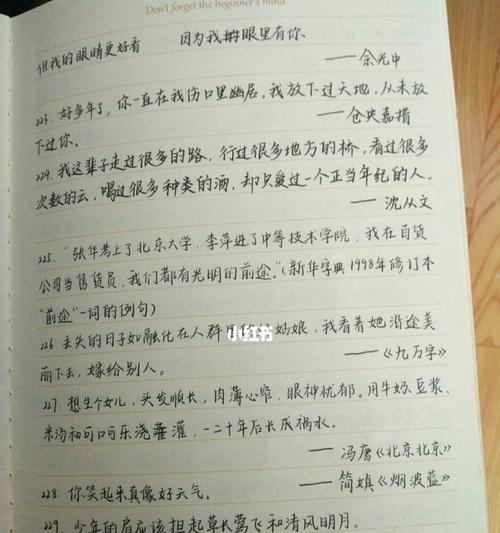 Don't forget the beginner's mind
但我的眼睛更好看 因为我眼里有你
——余光中
223. 好多年了，你一直在我伤口里幽居，我放下过天地，从未放
下过你。 ——仓央嘉措
224. 我这辈子走过很多的路，行过很多地方的桥，看过很多
次数的云，喝过很多种类的酒，却只爱过一个正当年纪的人。
——沈从文
225. "张华考上了北京大学，李萍进了中等技术学院，我在百货
公司当售货员，我们都有光明的前途。"（新华字典1998年修订本
"前途"一词的例句）
226 丢失的日子如融化在人群里 姑娘，我看着她沿途美
丽下去，嫁给别人。 ——《九万字》
小红书
227. 想生个女儿，头发顺长，肉薄心窄，眼神忧郁。用牛奶、豆浆、
米汤和可口可乐浇灌，一二十年后长成祸水。
——冯唐《北京北京》
228. 你笑起来真像好天气。 ——简媜《烟波蓝》
229. 少年的肩应该担起草长莺飞和清风明月。